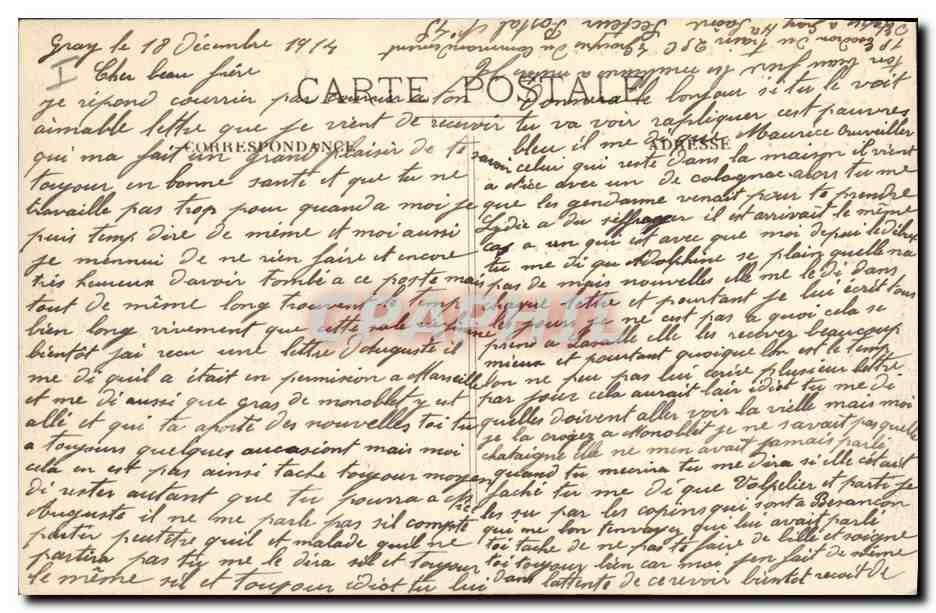 Gray le 18 Décembre 1914
I
Cher beau frère
CARTE POSTALE
CORRESPONDANCE
ADRESSE
je répond courrier par courrier a ton
aimable lettre que je vient de recevoir
qui ma fait un grand plaisir de te savoir
toujour en bonne santé et que tu ne
travaille pas trop pour quand a moi je
puis temp dire de même et moi aussi
je mennui de ne rien faire et encore
très heureux davoir tombé a ce poste mais
tout de même long trouvent le temp
bien long vivement que cette sale guerre
bientot jai recu une lettre dAuguste il
me di quil a était en permision a Marseille
et me di aussi que gras de monoblet y est
allé et qui ta aporté des nouvelles toi tu
a toujours quelques aucasiont mais moi
cela en est pas ainsi tache toujour moyen
di rester autant que tu pourra a
Auguste il ne me parle pas sil compte
partir peut être quil et malade quil ne
partira pas tu me le dira sil et toujour
le même sil et toujour idiot tu lui
Donnera le bonjour si tu le voit
tu va voir rapliquer cest pauvres
bleu il me di que Maurice Cuveiller
celui qui reste dans la maison il vient
a dice avec un de colognac alors tu me
que les gendarme venait pour te prendre
Lydie a du il est arrivait le même
cas a un qui est avec que moi depui le début
tu me di que Delphine se plain quelle na
pas de mais nouvelles elle me le di dans
chaque lettre et pourtant je lui écrit tous
les jours je ne cest pas a quoi cela se
prend a elle les recoez beaucoup
mieux et pourtant quoique lon est le temp
lon ne peu pas lui écrire plusieur lettre
par jour cela aurait lair idiot tu me di
quelles doivent aller voir la vielle mais moi
je la croyez a Monoblet je ne savait pas quelle
chataigne elle ne men avait jamais parlé
quand tu mecrira tu me dira si elle était
faché tu me di que Volpelier et parti je
les su par les copins qui sont a Besançon
qui me lon envoyez qui lui avait parlé
toi tache de ne pas te faire de bille et soigne
toi toujour bien car moi jen fait de même
dans lattente de recevoir bientot recoit de
ton frère
Escadron du train
Secteur Postal
CPAPHIL